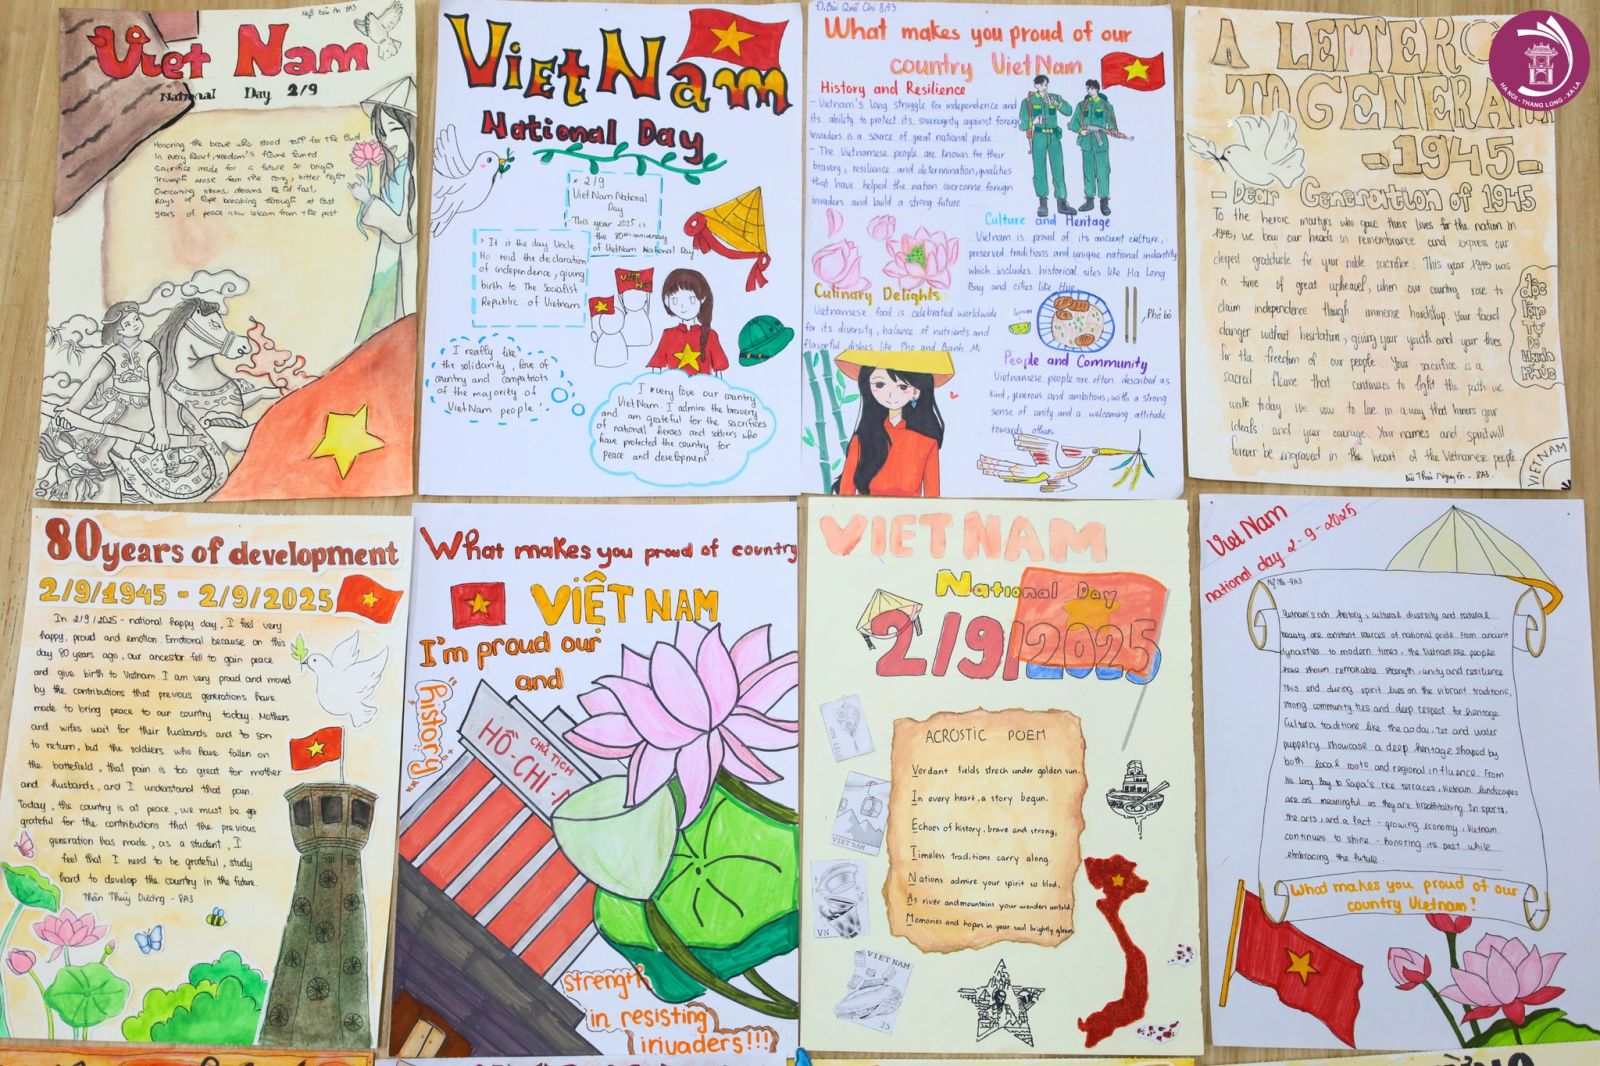 Việt Nam
National Day 2/9
Honoring the brave who stood tall for the land
In every heart, freedom's flame
Sacrifice made for a future so bright
Triumph arose from the long, bitter night
Overcoming storms, dreams
Rays of hope breaking through at last
Years of peace now bloom from the past
VietNam
National Day
* 2/9
VietNam National
Day.
This year 2025 is
the 80th anniversary
of VietNam National Day
> It is the day Uncle
Ho read the declaration
of independence, giving
birth to The Socialist
Republic of Vietnam
I really like
the solidarity, love of
country and compatriots
of the majority of
VietNam people!
I very love our country
VietNam. I admire the bravery
and am grateful for the sacrifices
of national heroes and soldiers who
have protected the country for
peace and development.
Đ.Bùi Quế Chi 8A3
What makes you proud of our
country VietNam
History and Resilience
- Vietnam's long struggle for independence and
its ability to protect its sovereignty against foreign
invaders is a source of great national pride
- The Vietnamese people are known for their
bravery, resilience and determination, qualities
that have helped the nation overcome foreign
invaders and build a strong future
Culture and Heritage
Vietnam is proud of its ancient culture,
preserved traditions and unique national indentity
which includes historical sites like Ha Long
Bay and cities like Hue.
Culinary Delights
Vietnamese food is celebrated worldwide
for its diversity, balance of nutrients and
flavorful dishes like Pho and Banh Mi
Phở bò
People and Community
Vietnamese people are often described as
kind, generous and ambitious, with a strong
sense of unity and a welcoming attitude
towards others
A LETTER
TO GENERA
-1945-
- Dear Generation of 1945
To the heroic martyrs who gave their lives for the nation in
1945, we bow our heads in remembrance and express our
deepest gratitude for your noble sacrifice. This year 1945 was
a time of great upheavel, when our country rose to
claim independence though immense hardship. Your faced
danger without hesitation, giving your youth and your lives
for the freedom of our people. Your sacrifice is a
sacred flame that continues to light the path we
walk today. We vow to live in a way that honors your
ideals and your courage. Your names and spirit will
forever be engraved in the heart of the Vietnamese people.
Bùi Thái Nguyên - 8A3
độc
lập Tự
Do Hạnh
Phúc
VIETNAM
HA NOI - THANG LONG - XA LA
80 years of development
2/9/1945 - 2/9/2025
In 2/9/2025 - national happy day, I feel very
happy, proud and emotion. Emotional because on this
day 80 years ago, our ancestor fell to gain peace
and give birth to Vietnam I am very proud and moved
by the contributions that previous generations have
made to bring peace to our country today. Mothers
and wifes wait for their husbands and to son
to return, but the soldiers who have fallen on
the battefield, that pain is too great for mother
and husbands, and I understand that pain.
Today, the country is at peace, we must be
grateful for the contributions that the previous
generation has made, as a student, I
feel that I need to be grateful, study
hard to develop the country in the future.
Thân Thuỳ Dương - 8A3
What makes you proud of country
VIỆT NAM
I'm proud our
and
"history"
CHỦ TỊCH
HỒ-CHÍ-M
strength
in resisting
invaders!!!
VIET NAM
National Day
2/9/2025
ACROSTIC POEM
Verdant fields strech under golden sun.
In every heart, a story begun.
Echoes of history, brave and strong,
Timeless traditions carry along.
Nations admire your spirit so
As river and mountains your wonders untold.
Memories and hopes in your soul brightly gleam
VIET NAM
VIET-NAM
VN
VIET NAM
Viet Nam
national day 2-9-2025
Vietnam's rich history, cultural diversity and natural
beauty are constant sources of national pride. From ancient
dynasties to modern times, the Vietnamese people
have shown remarkable strength, unity and resilience
This end during spirit lives on the vibrant traditions,
strong community ties and deep respect for heritage
Cultura traditions like the aodai, Tet and water
puppetry showcase a deep heritage shaped by
both local roots and regional influence. From
Ha Long Bay to Sapa's rice terraces, Vietnam landscapes
are as meaningful as they are breathtaking. In sports,
the arts, and a fact - growing economy, Vietnam
continues to shine - honoring its past while
embracing the future.
What makes you proud of our
country Vietnam?